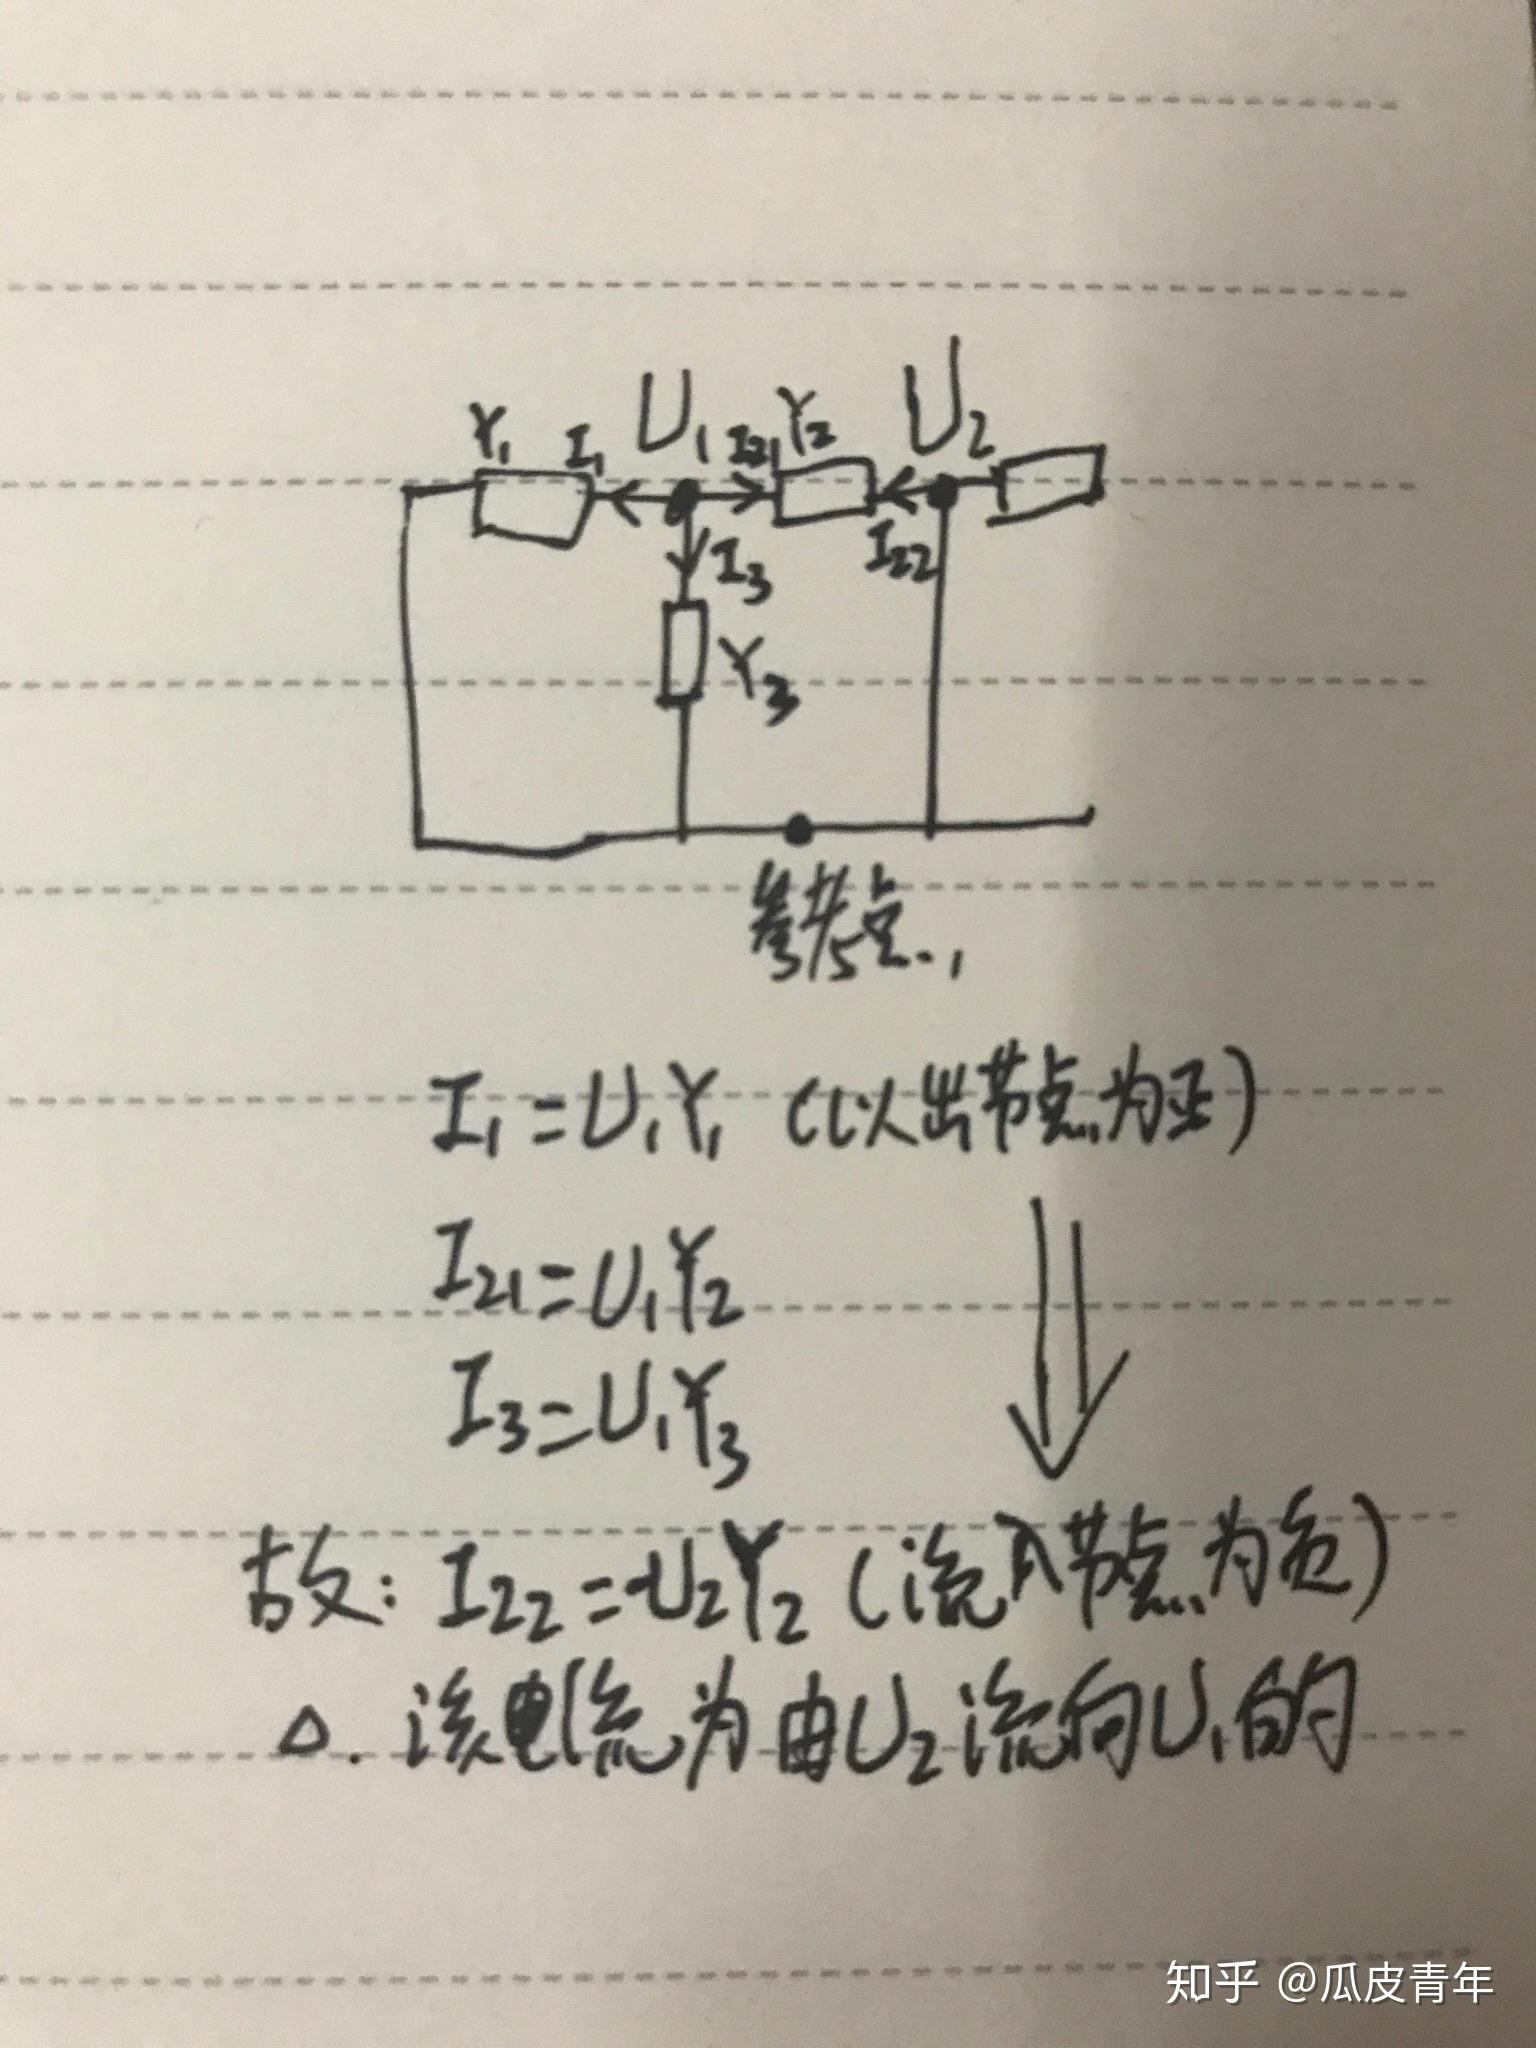 Y₁ I₁ U₁ I₂₁ Y₂ U₂
I₃ I₂₂
Y₃
参考点
I₁=U₁Y₁ (以出节点为正)
I₂₁=U₁Y₂
I₃=U₁Y₃
故: I₂₂=-U₂Y₂ (流入节点为负)
△. 该电流为由U₂流向U₁的
知乎 @瓜皮青年